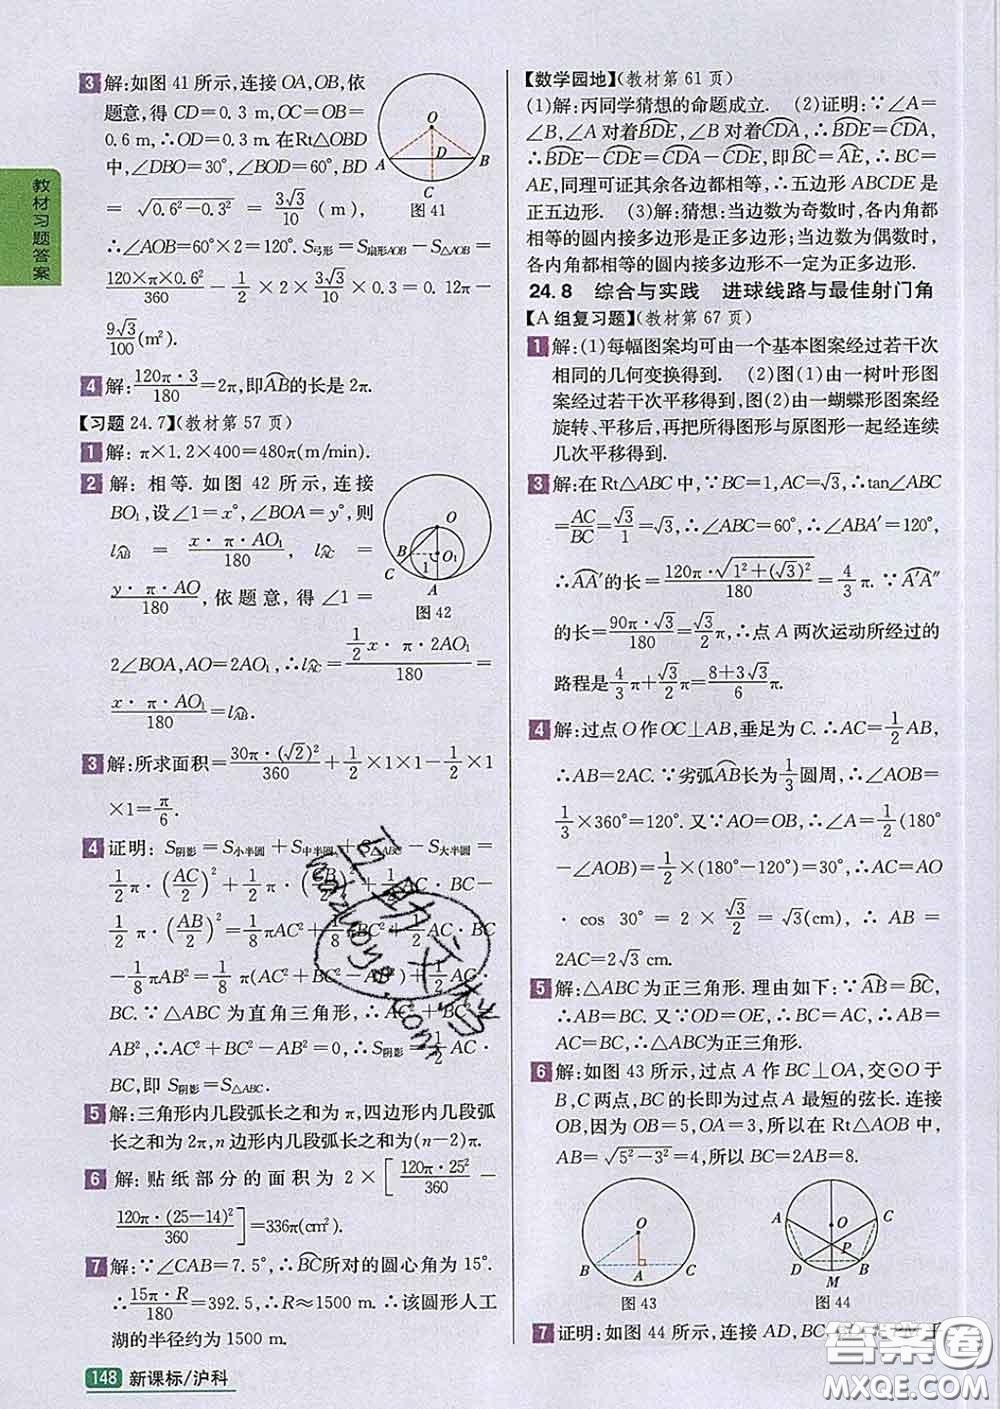 教材习题答案
3 解:如图 41 所示,连接 OA,OB,依
题意,得 CD=0.3 m,OC=OB=
0.6 m,∴OD=0.3 m.在Rt△OBD
中,∠DBO=30°,∠BOD=60°,BD
= √(0.6²−0.3²) = 3√3/10 (m),
∴∠AOB=60°×2=120°. S弓形=S扇形AOB−S△AOB=
120×π×0.6²/360 − 1/2 × 2 × 3√3/10 × 0.3 = 0.12π−
9√3/100(m²).
O
A
D
B
C
图 41
4 解:120π·3/180=2π,即AB的长是 2π.
【习题 24.7】(教材第 57 页)
1 解: π×1.2×400=480π(m/min).
2 解: 相等. 如图 42 所示,连接
BO₁,设∠1=x°,∠BOA=y°,则
l AB = x·π·AO₁/180, l AC =
y·π·AO/180,依题意,得∠1=
2∠BOA,AO=2AO₁,∴l AC= 1/2x·π·2AO₁/180 =
x·π·AO₁/180=l AB.
O
B
O₁
1
C
A
图 42
3 解:所求面积=30π·(√2)²/360+1/2×1×1−1/2×1
×1=π/6.
4 证明: S阴影=S小半圆+S中半圆+S△ABC−S大半圆=
1/2π·(AC/2)²+1/2π·(CB/2)²+1/2AC·BC−
1/2π·(AB/2)²=1/8πAC²+1/8πBC²+1/2AC·BC
−1/8πAB²=1/8π(AC²+BC²−AB²)+1/2AC·
BC.∵△ABC 为直角三角形,∴AC²+BC²=
AB²,∴AC²+BC²−AB²=0,∴S阴影=1/2AC·
BC,即 S阴影=S△ABC.
5 解:三角形内几段弧长之和为 π,四边形内几段弧
长之和为 2π,n 边形内几段弧长之和为(n−2)π.
6 解: 贴纸部分的面积为 2×[120π·25²/360−
120π·(25−14)²/360]=336π(cm²).
7 解:∵∠CAB=7.5°,∴BC所对的圆心角为 15°.
∴15π·R/180=392.5,∴R≈1500 m.∴该圆形人工
湖的半径约为 1500 m.
148 新课标/沪科
【数学园地】(教材第 61 页)
(1)解:丙同学猜想的命题成立. (2)证明:∵∠A=
∠B,∠A 对着BDE,∠B 对着CDA,∴BDE=CDA,
∴BDE−CDE=CDA−CDE,即BC=AE,∴BC=
AE,同理可证其余各边都相等,∴五边形 ABCDE 是
正五边形. (3)解:猜想:当边数为奇数时,各内角都
相等的圆内接多边形是正多边形;当边数为偶数时,
各内角都相等的圆内接多边形不一定为正多边形.
24.8 综合与实践 进球线路与最佳射门角
【A 组复习题】(教材第 67 页)
1 解:(1)每幅图案均可由一个基本图案经过若干次
相同的几何变换得到. (2)图(1)由一树叶形图
案经过若干次平移得到,图(2)由一蝴蝶形图案经
旋转、平移后,再把所得图形与原图形一起经连续
几次平移得到.
3 解:在 Rt△ABC 中,∵BC=1,AC=√3,∴tan∠ABC
=AC/BC=√3/1=√3,∴∠ABC=60°,∴∠ABA′=120°,
∴AA′的长=120π·√(1²+(√3)²)/180=4/3π.∵A′A″
的长=90π·√3/180=√3/2π,∴点 A 两次运动所经过的
路程是4/3π+√3/2π=(8+3√3)/6π.
4 解:过点 O 作 OC⊥AB,垂足为 C.∴AC=1/2AB,
∴AB=2AC.∵劣弧AB长为1/3圆周,∴∠AOB=
1/3×360°=120°.又∵OA=OB,∴∠A=1/2(180°
−∠AOB)=1/2×(180°−120°)=30°.∴AC=AO
·cos 30°=2×√3/2=√3(cm),∴AB=
2AC=2√3 cm.
5 解:△ABC 为正三角形. 理由如下:∵AB=BC,
∴AB=BC.又∵OD=OE,∴BC=AC,∴AB=
AC=BC,∴△ABC为正三角形.
6 解:如图 43 所示,过点 A 作 BC⊥OA,交⊙O 于
B,C 两点,BC 的长即为过点 A 最短的弦长. 连接
OB,因为 OB=5,OA=3,所以在 Rt△AOB 中,
AB=√(5²−3²)=4,所以 BC=2AB=8.
O
B
A
C
图 43
A
O
C
P
D
B
M
图 44
7 证明:如图 44 所示,连接 AD,BC,
答案圈
MXQE.COM